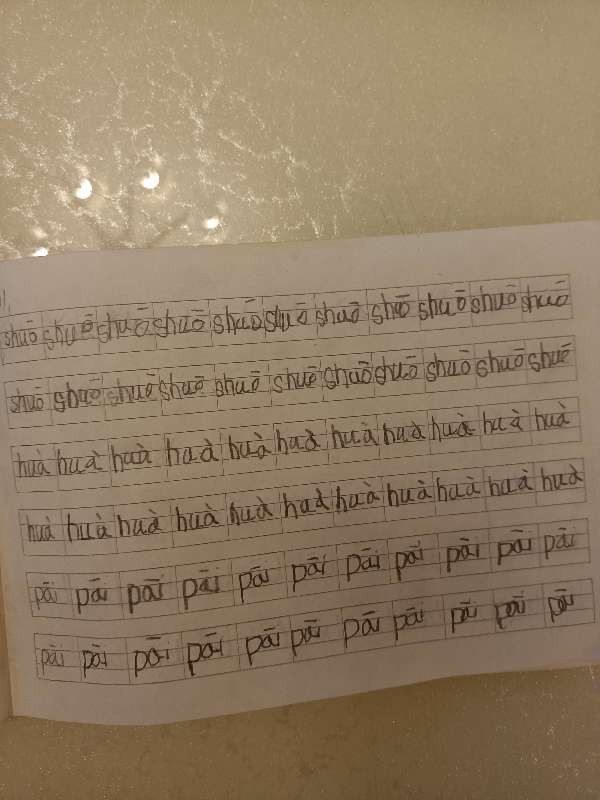 shuō shuō shuō shuō shuō shuō shuō shuō shuō shuō shuō
shuō shuō shuō shuō shuō shuō shuō shuō shuō shuō shuō
huà huà huà huà huà huà huà huà huà huà huà
huà huà huà huà huà huà huà huà huà huà huà
pāi pāi pāi pāi pāi pāi pāi pāi pāi pāi pāi
pāi pāi pāi pāi pāi pāi pāi pāi pāi pāi pāi